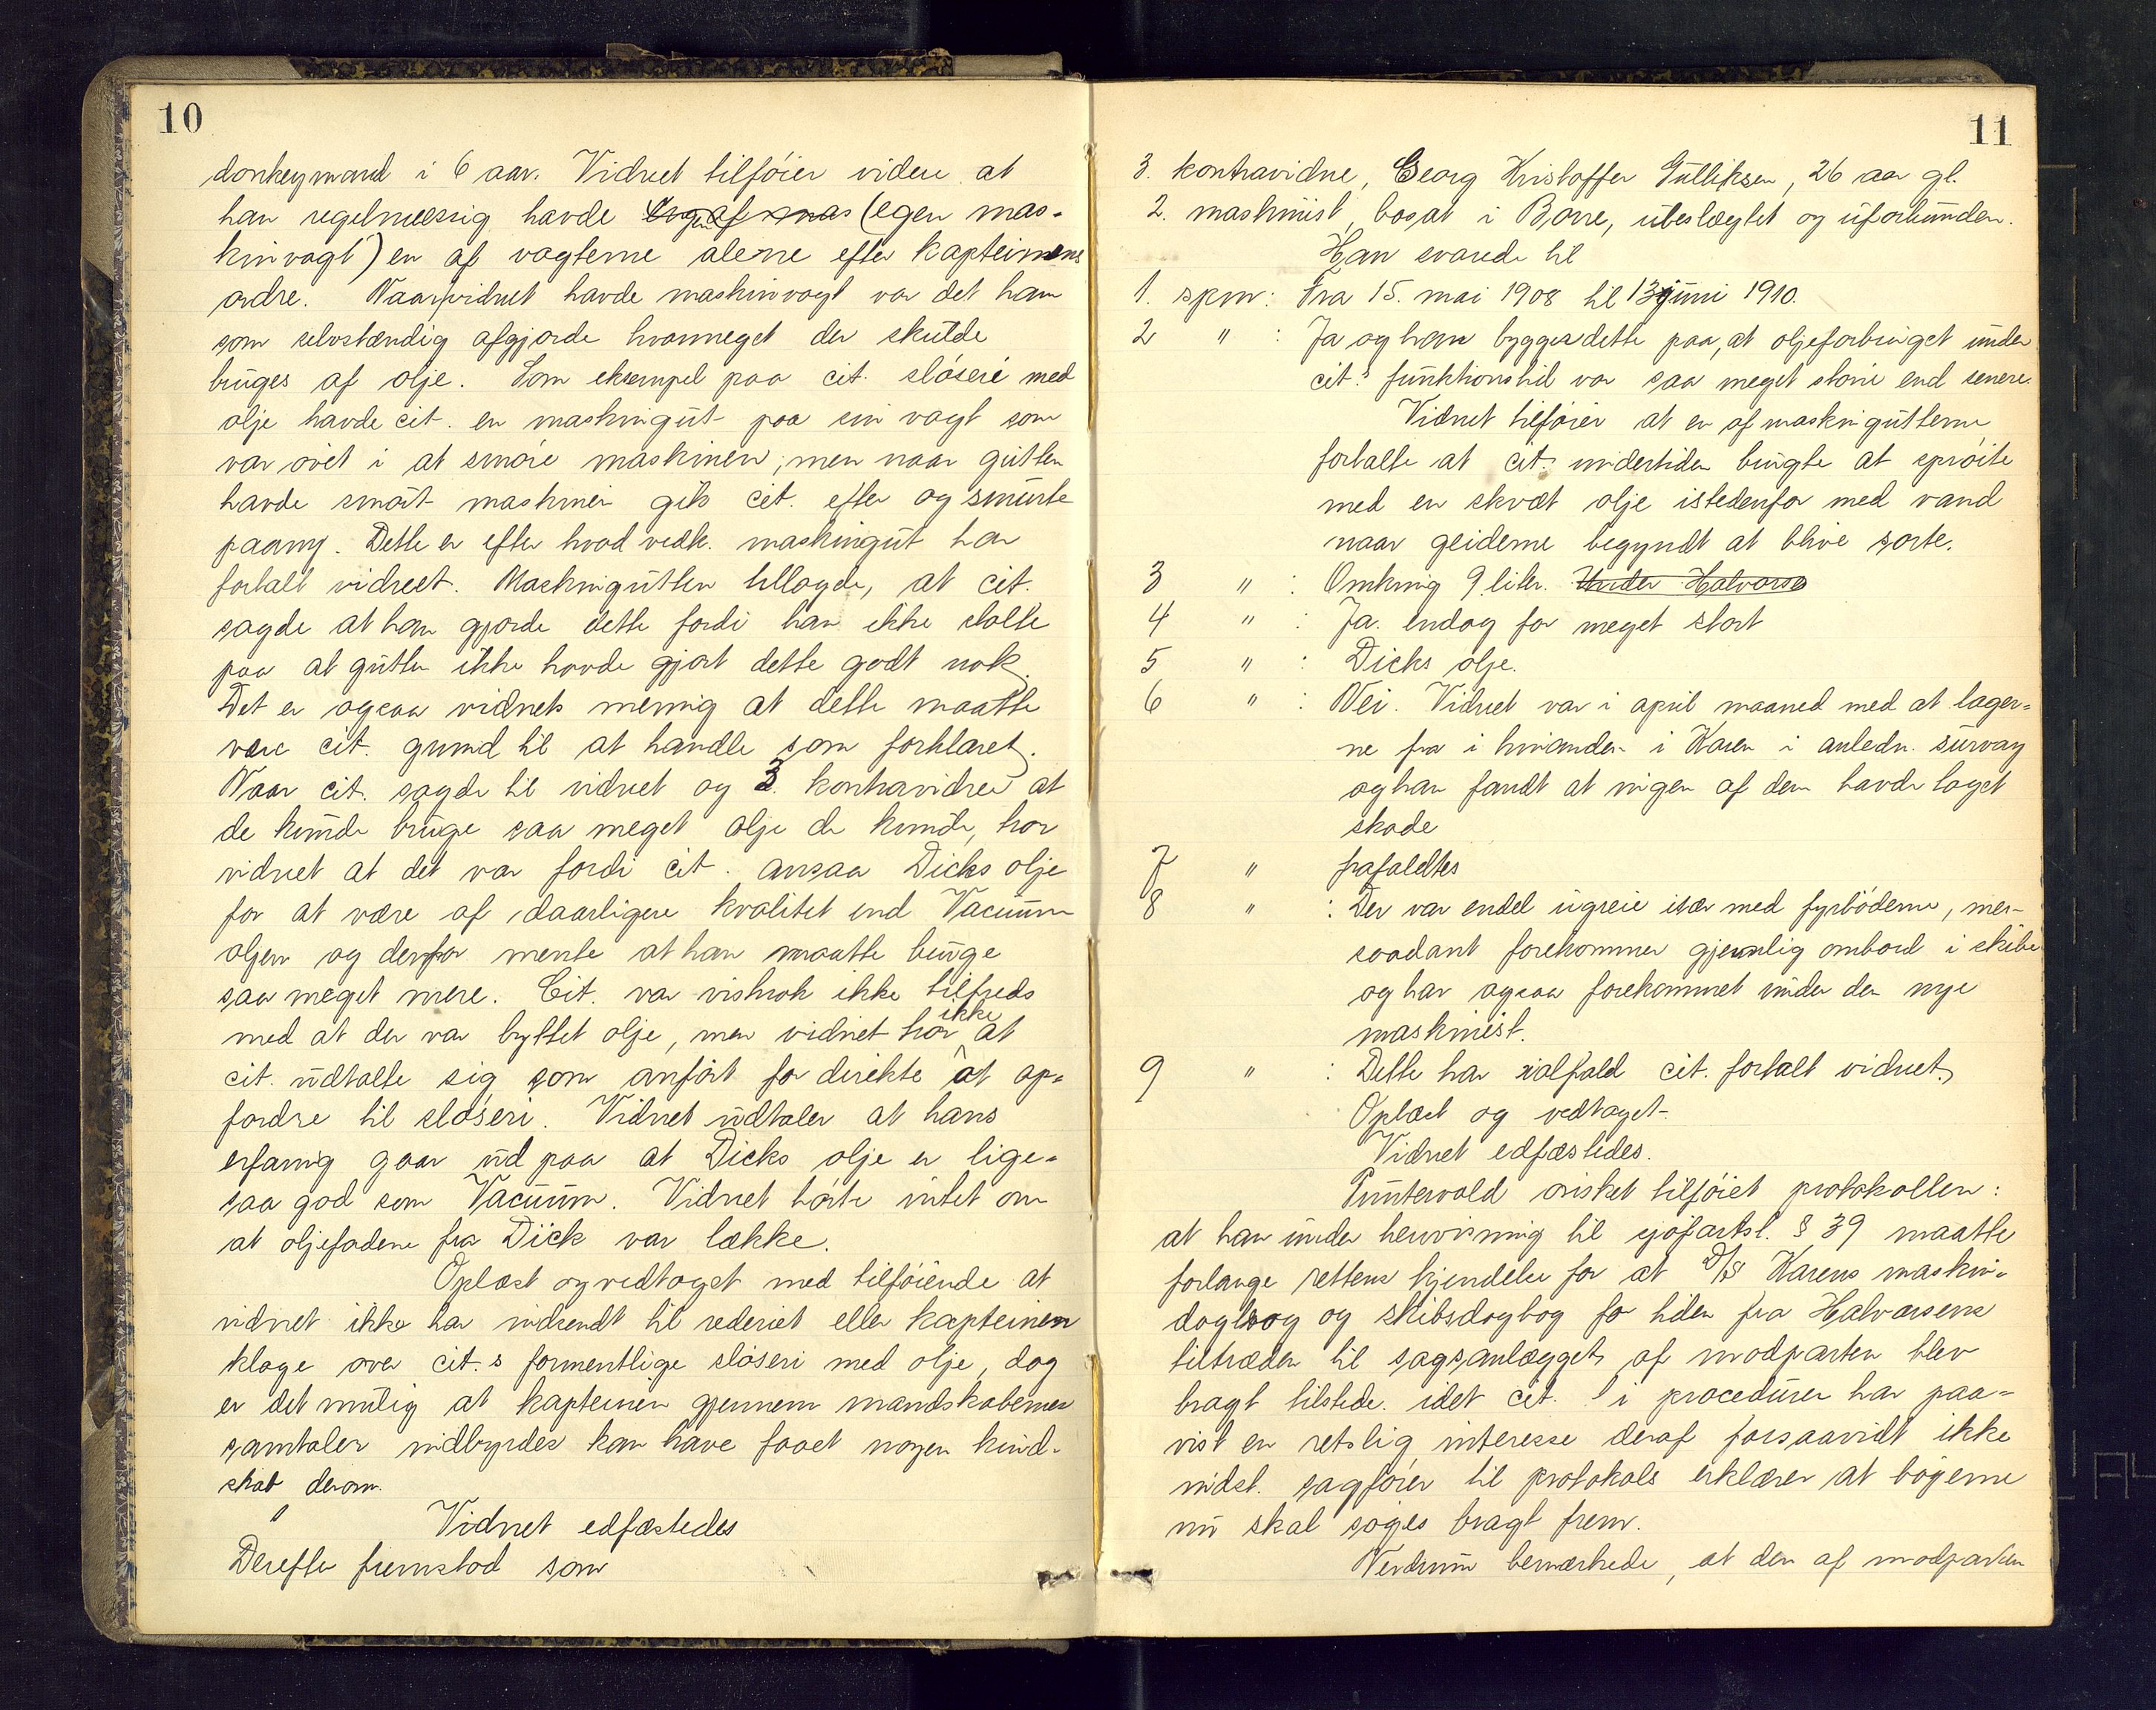 10
donkeymand i 6 aar. Vidnet tilföier videre at
han regelmæssig havde (egen mas-
kinvagt) en af vagterne alene efter kapteinens
ordre. Naar vidnet havde maskinvagt var det ham
som selvstændig afgjorde hvormeget der skulde
bruges af olje. Som eksempel paa cit. slöseri med
olje havde cit. en maskingut paa sin vagt som
var övet i at smöre maskinen, men naar gutten
havde smört maskinen gik cit. efter og smurte
paany. Dette er efter hvad vedk. maskingut har
fortalt vidnet. Maskingutten tillagde, at cit.
sagde at han gjorde dette fordi han ikke stolte
paa at gutten ikke havde gjort dette godt nok.
Det er ogsaa vidnets mening at dette maatte
være cit. grund til at handle som forklaret.
Naar cit. sagde til vidnet og 3. kontravidne at
de kunde bruge saa meget olje de kunde, tror
vidnet at det var fordi cit. ansaa Dicks olje
for at være af daarligere kvalitet end Vacuum
oljen og derfor mente at han maatte bruge
saa meget mere. Cit. var vistnok ikke tilfreds
med at der var byttet olje, men vidnet tror ikke at
cit. udtalte sig som anfört for direkte at op-
fordre til slöseri. Vidnet udtaler at hans
erfaring gaar ud paa at Dicks olje er lige-
saa god som Vacuum. Vidnet hörte intet om
at oljefadene fra Dick var lække.
Oplæst og vedtaget med tilföiende at
vidnet ikke har indsendt til rederiet eller kapteinen
klage over cit.s formentlige slöseri med olje, dog
er det mulig at kapteinen gjennem mandskabernes
samtaler indbyrdes kan have faaet nogen kund-
skab derom.
Vidnet edfæstedes
Derefter fremstod som
11
3. kontravidne, Georg Kristoffer Gulliksen, 26 aar gl.
2. maskinist, bosat i Borre, ubeslægtet og uforbunden.
Han svarede til
1. spm: Fra 15. mai 1908 til 13 juni 1910.
2 " : Ja og han bygger dette paa, at oljeforbruget under
cit.s funktionstid var saa meget större end senere.
Vidnet tilföier at en af maskingutterne
fortalte at cit. undertiden brugte at spröite
med en skvæt olje istedenfor med vand
naar geiderne begyndt at blive sorte.
3 " : Omkring 9 liter. Under Halvorse
4 " : Ja. endog for meget stort
5 " : Dicks olje.
6 " : Nei. Vidnet var i april maaned med at lager-
ne fra i hinanden i Karen i anledn. survay
og han fandt at ingen af dem havde taget
skade
7 " frafaldtes
8 " : Der var endel ugreie især med fyrböderne, men
saadant forekommer gjemnlig ombord i skibe
og har ogsaa forekommet under den nye
maskinist.
9 " : Dette har ialfald cit. fortalt vidnet.
Oplæst og vedtaget.
Vidnet edfæstedes.
Tuntervold önsket tilföiet protokollen:
at han under henvisning til sjöfartsl. § 39 maatte
forlange rettens kjendelse for at D/S Karens maskin-
dagbog og skibsdagbog for tiden fra Halvorsens
tiltræden til sagsanlægget af modparten blev
bragt tilstede. idet cit. i proceduren har paa-
vist en retslig interesse deraf forsaavidt ikke
indst. sagförer til protokols erklærer at bögerne
nu skal söges bragt frem.
bemærkede, at den af modparten